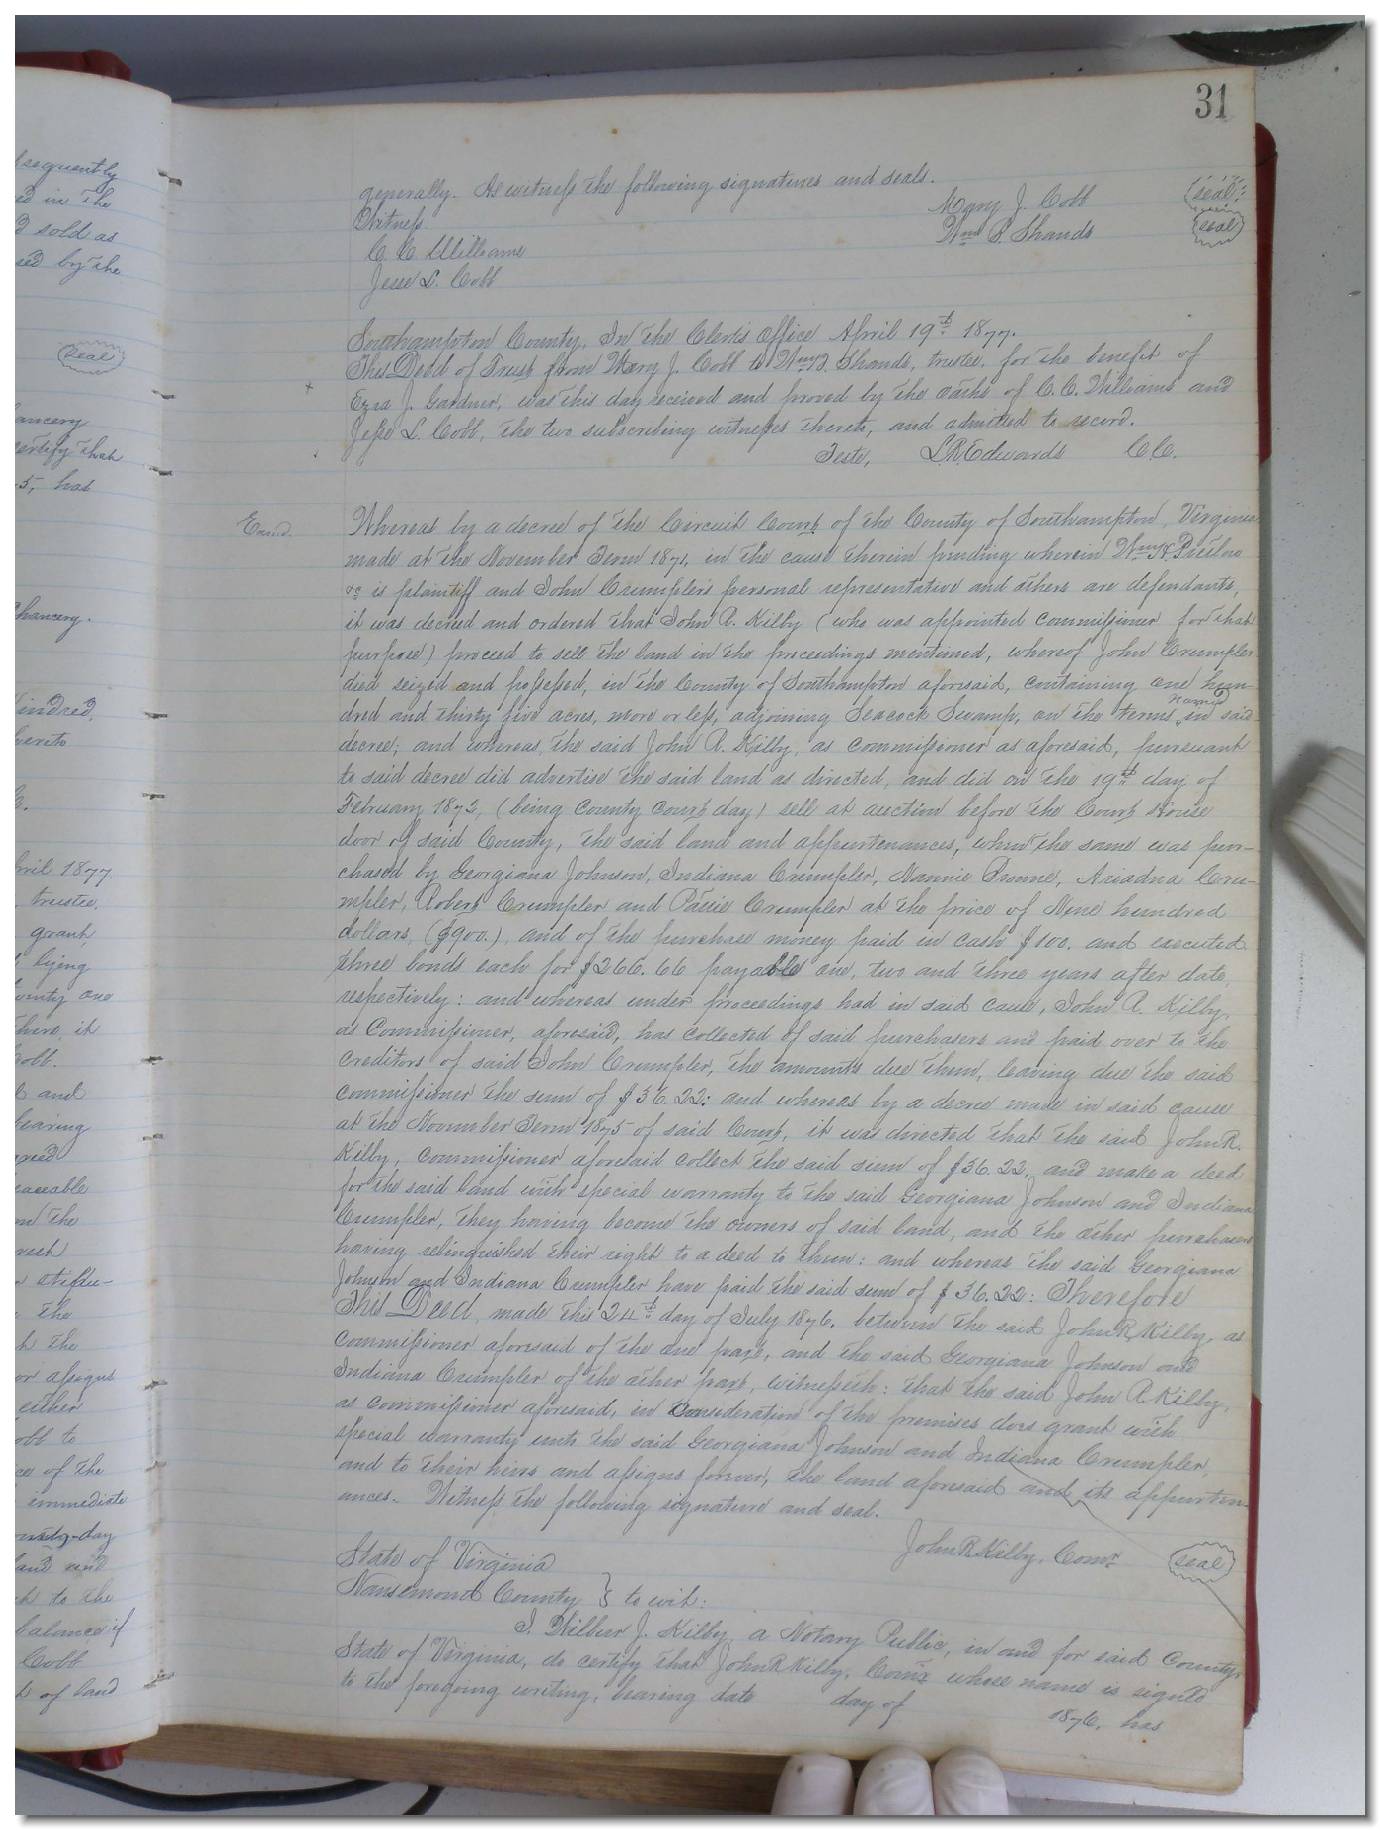 31
generally. As witness the following signatures and seals.
Witness Mary J. Cobb (seal)
C. C. Williams Wm B. Shands (seal)
Jesse L. Cobb
Southampton County, In the Clerk's Office April 19th 1877.
This Deed of Trust from Mary J. Cobb to Wm B. Shands, trustee, for the benefit of
Ezra J. Gardner, was this day received and proved by the oaths of C. C. Williams and
Jesse L. Cobb, the two subscribing witnesses thereto, and admitted to record.
Teste, L. R. Edwards C. C.
Exmd.
Whereas by a decree of the Circuit Court of the County of Southampton, Virginia
made at the November Term 1871, in the cause therein pending wherein Wm H
&c is plaintiff and John Crumpler's personal representative and others are defendants,
it was decreed and ordered that John R. Kilby (who was appointed commissioner for that
purpose) proceed to sell the land in the proceedings mentioned, whereof John Crumpler
died seized and possessed, in the County of Southampton aforesaid, containing one hun-
dred and thirty five acres, more or less, adjoining Seacock Swamp, on the terms named in said
decree; and whereas, the said John R. Kilby, as commissioner as aforesaid, pursuant
to said decree did advertise the said land as directed, and did on the 19th day of
February 1872, (being County Court day) sell at auction before the Court House
door of said County, the said land and appurtenances, when the same was pur-
chased by Georgiana Johnson, Indiana Crumpler, Nannie Ariadna Cru-
mpler, Robert Crumpler and Pattie Crumpler at the price of Nine hundred
dollars, ($900.), and of the purchase money paid in cash $100. and executed
three bonds each for $266.66 payable one, two and three years after date,
respectively: and whereas under proceedings had in said cause, John R. Kilby,
as Commissioner, aforesaid, has collected of said purchasers and paid over to the
creditors of said John Crumpler, the amounts due them, leaving due the said
commissioner the sum of $36.22: and whereas by a decree made in said cause
at the November Term 1875 of said Court, it was directed that the said John R.
Kilby, commissioner aforesaid collect the said sum of $36.22, and make a deed
for the said land with special warranty to the said Georgiana Johnson and Indiana
Crumpler, they having become the owners of said land, and the other purchasers
having relinquished their right to a deed to them: and whereas the said Georgiana
Johnson and Indiana Crumpler have paid the said sum of $36.22: Therefore
This Deed, made this 24th day of July 1876. between the said John R Kilby, as
commissioner aforesaid of the one part, and the said Georgiana Johnson and
Indiana Crumpler of the other part, witnesseth: that the said John R. Kilby,
as commissioner aforesaid, in Consideration of the premises does grant with
special warranty unto the said Georgiana Johnson and Indiana Crumpler,
and to their heirs and assigns forever, the land aforesaid and its appurten-
ances. Witness the following signature and seal.
John R Kilby, Comr (seal)
State of Virginia
Nansemond County } to wit:
I. Wilbur J. Kilby, a Notary Public, in and for said County,
State of Virginia, do certify that John R Kilby, Comr whose name is signed
to the foregoing writing, bearing date day of 1876, has